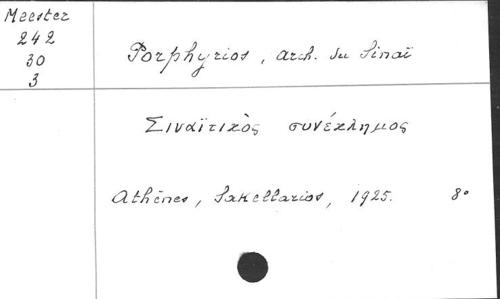 Meester
242
30
3
Porphyrios, arch. du Sinaï
Σιναϊτικὸς συνέκλημος
Athènes, Sakellarios, 1925. 8°